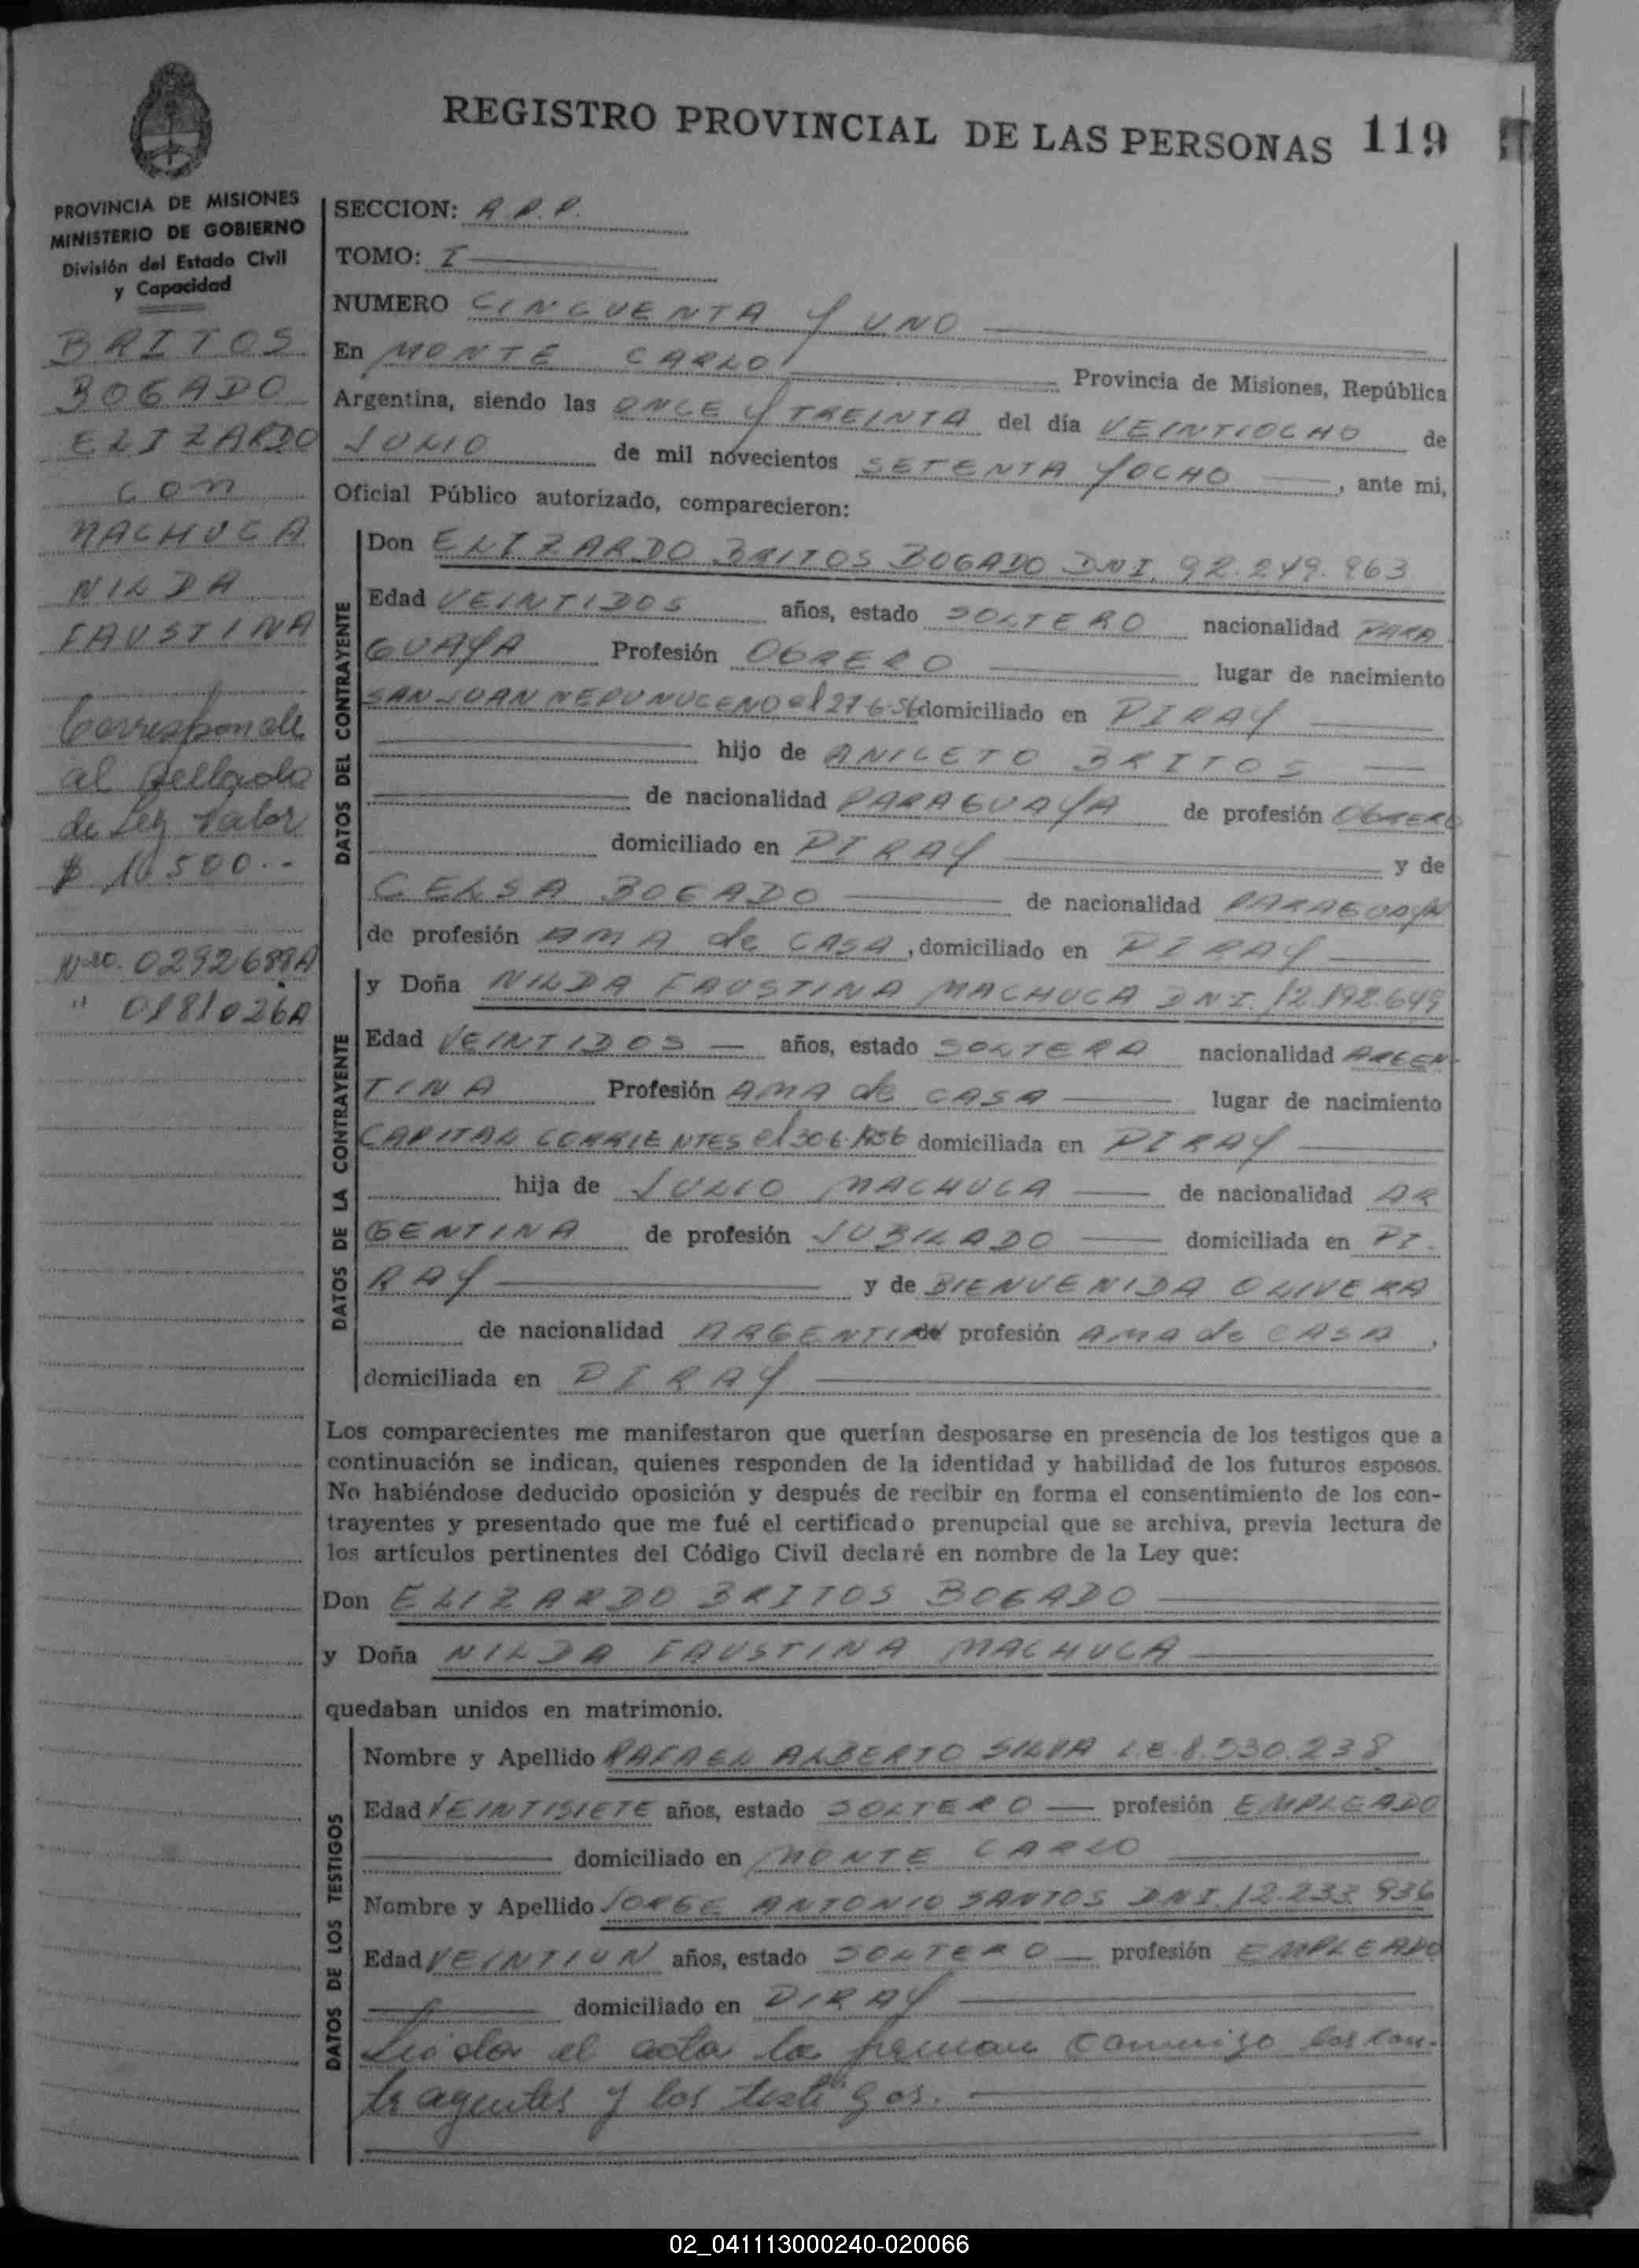 REGISTRO PROVINCIAL DE LAS PERSONAS 119
PROVINCIA DE MISIONES
MINISTERIO DE GOBIERNO
División del Estado Civil
y Capacidad
BRITOS
BOGADO
ELIZARDO
con
MACHUCA
NILDA
FAUSTINA
Corresponde
al Sellado
de Ley Valor
$ 10.500.--
Nro. 0292689A
" 0181026A
SECCION: R.P.P.
TOMO: I
NUMERO CINCUENTA Y UNO
En MONTE CARLO Provincia de Misiones, República
Argentina, siendo las ONCE y TREINTA del día VEINTIOCHO de
JULIO de mil novecientos SETENTA Y OCHO, ante mi,
Oficial Público autorizado, comparecieron:
DATOS DEL CONTRAYENTE
Don ELIZARDO BRITOS BOGADO DNI. 92.249.963
Edad VEINTIDOS años, estado SOLTERO nacionalidad PARA
GUAYA Profesión OBRERO lugar de nacimiento
SAN JUAN NEPUNUCENO el 27-6-56 domiciliado en PIRAY
hijo de ANICETO BRITOS
de nacionalidad PARAGUAYA de profesión OBRERO
domiciliado en PIRAY y de
CELSA BOGADO de nacionalidad PARAGUAYA
de profesión AMA de CASA, domiciliado en PIRAY
DATOS DE LA CONTRAYENTE
y Doña NILDA FAUSTINA MACHUCA DNI. 12.192.649
Edad VEINTIDOS años, estado SOLTERA nacionalidad ARGEN-
TINA Profesión AMA de CASA lugar de nacimiento
CAPITAL CORRIENTES el 30-6-1956 domiciliada en PIRAY
hija de JULIO MACHUCA de nacionalidad AR
GENTINA de profesión JUBILADO domiciliada en PI-
RAY y de BIENVENIDA OLIVERA
de nacionalidad ARGENTINA de profesión AMA de CASA,
domiciliada en PIRAY
Los comparecientes me manifestaron que querían desposarse en presencia de los testigos que a
continuación se indican, quienes responden de la identidad y habilidad de los futuros esposos.
No habiéndose deducido oposición y después de recibir en forma el consentimiento de los con-
trayentes y presentado que me fué el certificado prenupcial que se archiva, previa lectura de
los artículos pertinentes del Código Civil declaré en nombre de la Ley que:
Don ELIZARDO BRITOS BOGADO
y Doña NILDA FAUSTINA MACHUCA
quedaban unidos en matrimonio.
DATOS DE LOS TESTIGOS
Nombre y Apellido RAFAEL ALBERTO SILVA L.E. 8.530.238
Edad VEINTISIETE años, estado SOLTERO profesión EMPLEADO
domiciliado en MONTE CARLO
Nombre y Apellido JORGE ANTONIO SANTOS DNI. 12.233.936
Edad VEINTIUN años, estado SOLTERO profesión EMPLEADO
domiciliado en PIRAY
Leida el acta la firman conmigo los con-
trayentes y los testigos.
02_041113000240-020066